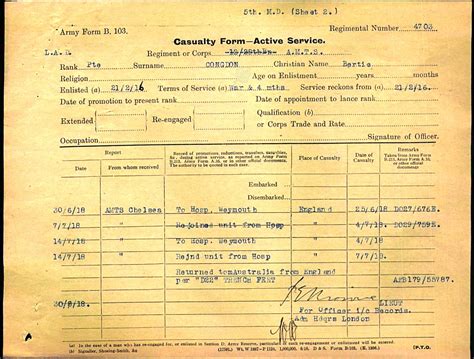 5th. M.D. (Sheet 2.)
Army Form B. 103. Regimental Number 4703
Casualty Form—Active Service.
L.A.E. Regiment or Corps 12/28thBn A.M.T.S.
Rank Pte Surname CONGDON Christian Name Bertie
Religion Age on Enlistment years months
Enlisted (a) 21/2/16 Terms of Service (a) War & 4 mths Service reckons from (a) 21/2/16.
Date of promotion to present rank Date of appointment to lance rank
Extended Re-engaged Qualification (b)
or Corps Trade and Rate
Occupation Signature of Officer.
Report
Date From whom received
Record of promotions, reductions, transfers, casualties,
&c., during active service, as reported on Army Form
B.213, Army Form A.36, or in other official documents.
The authority to be quoted in each case.
Place of Casualty
Date of Casualty
REMARKS
Taken from Army Form
B.213, Army Form A.36,
or other official
documents
Embarked
Disembarked
30/6/18 AMTS Chelsea To Hosp, Weymouth England 25/6/18 DO27/676E.
7/7/18 " Rejoined unit from Hosp 4/7/18. DO29/759E.
14/7/18 " To Hosp, Weymouth 4/7/18
14/7/18 " Rejnd unit from Hosp 5/7/18.
Returned to Australia from England
per "D22" TRENCH FEET APB179/55787.
30/8/18. LIEUT
For Officer i/c Records.
Adm Hdqrs London
(a) In the case of a man who has re-engaged for, or enlisted in Section D. Army Reserve, particulars of such re-engagement or enlistment will be entered.
(b) Signaller, Shoeing-Smith, &c.